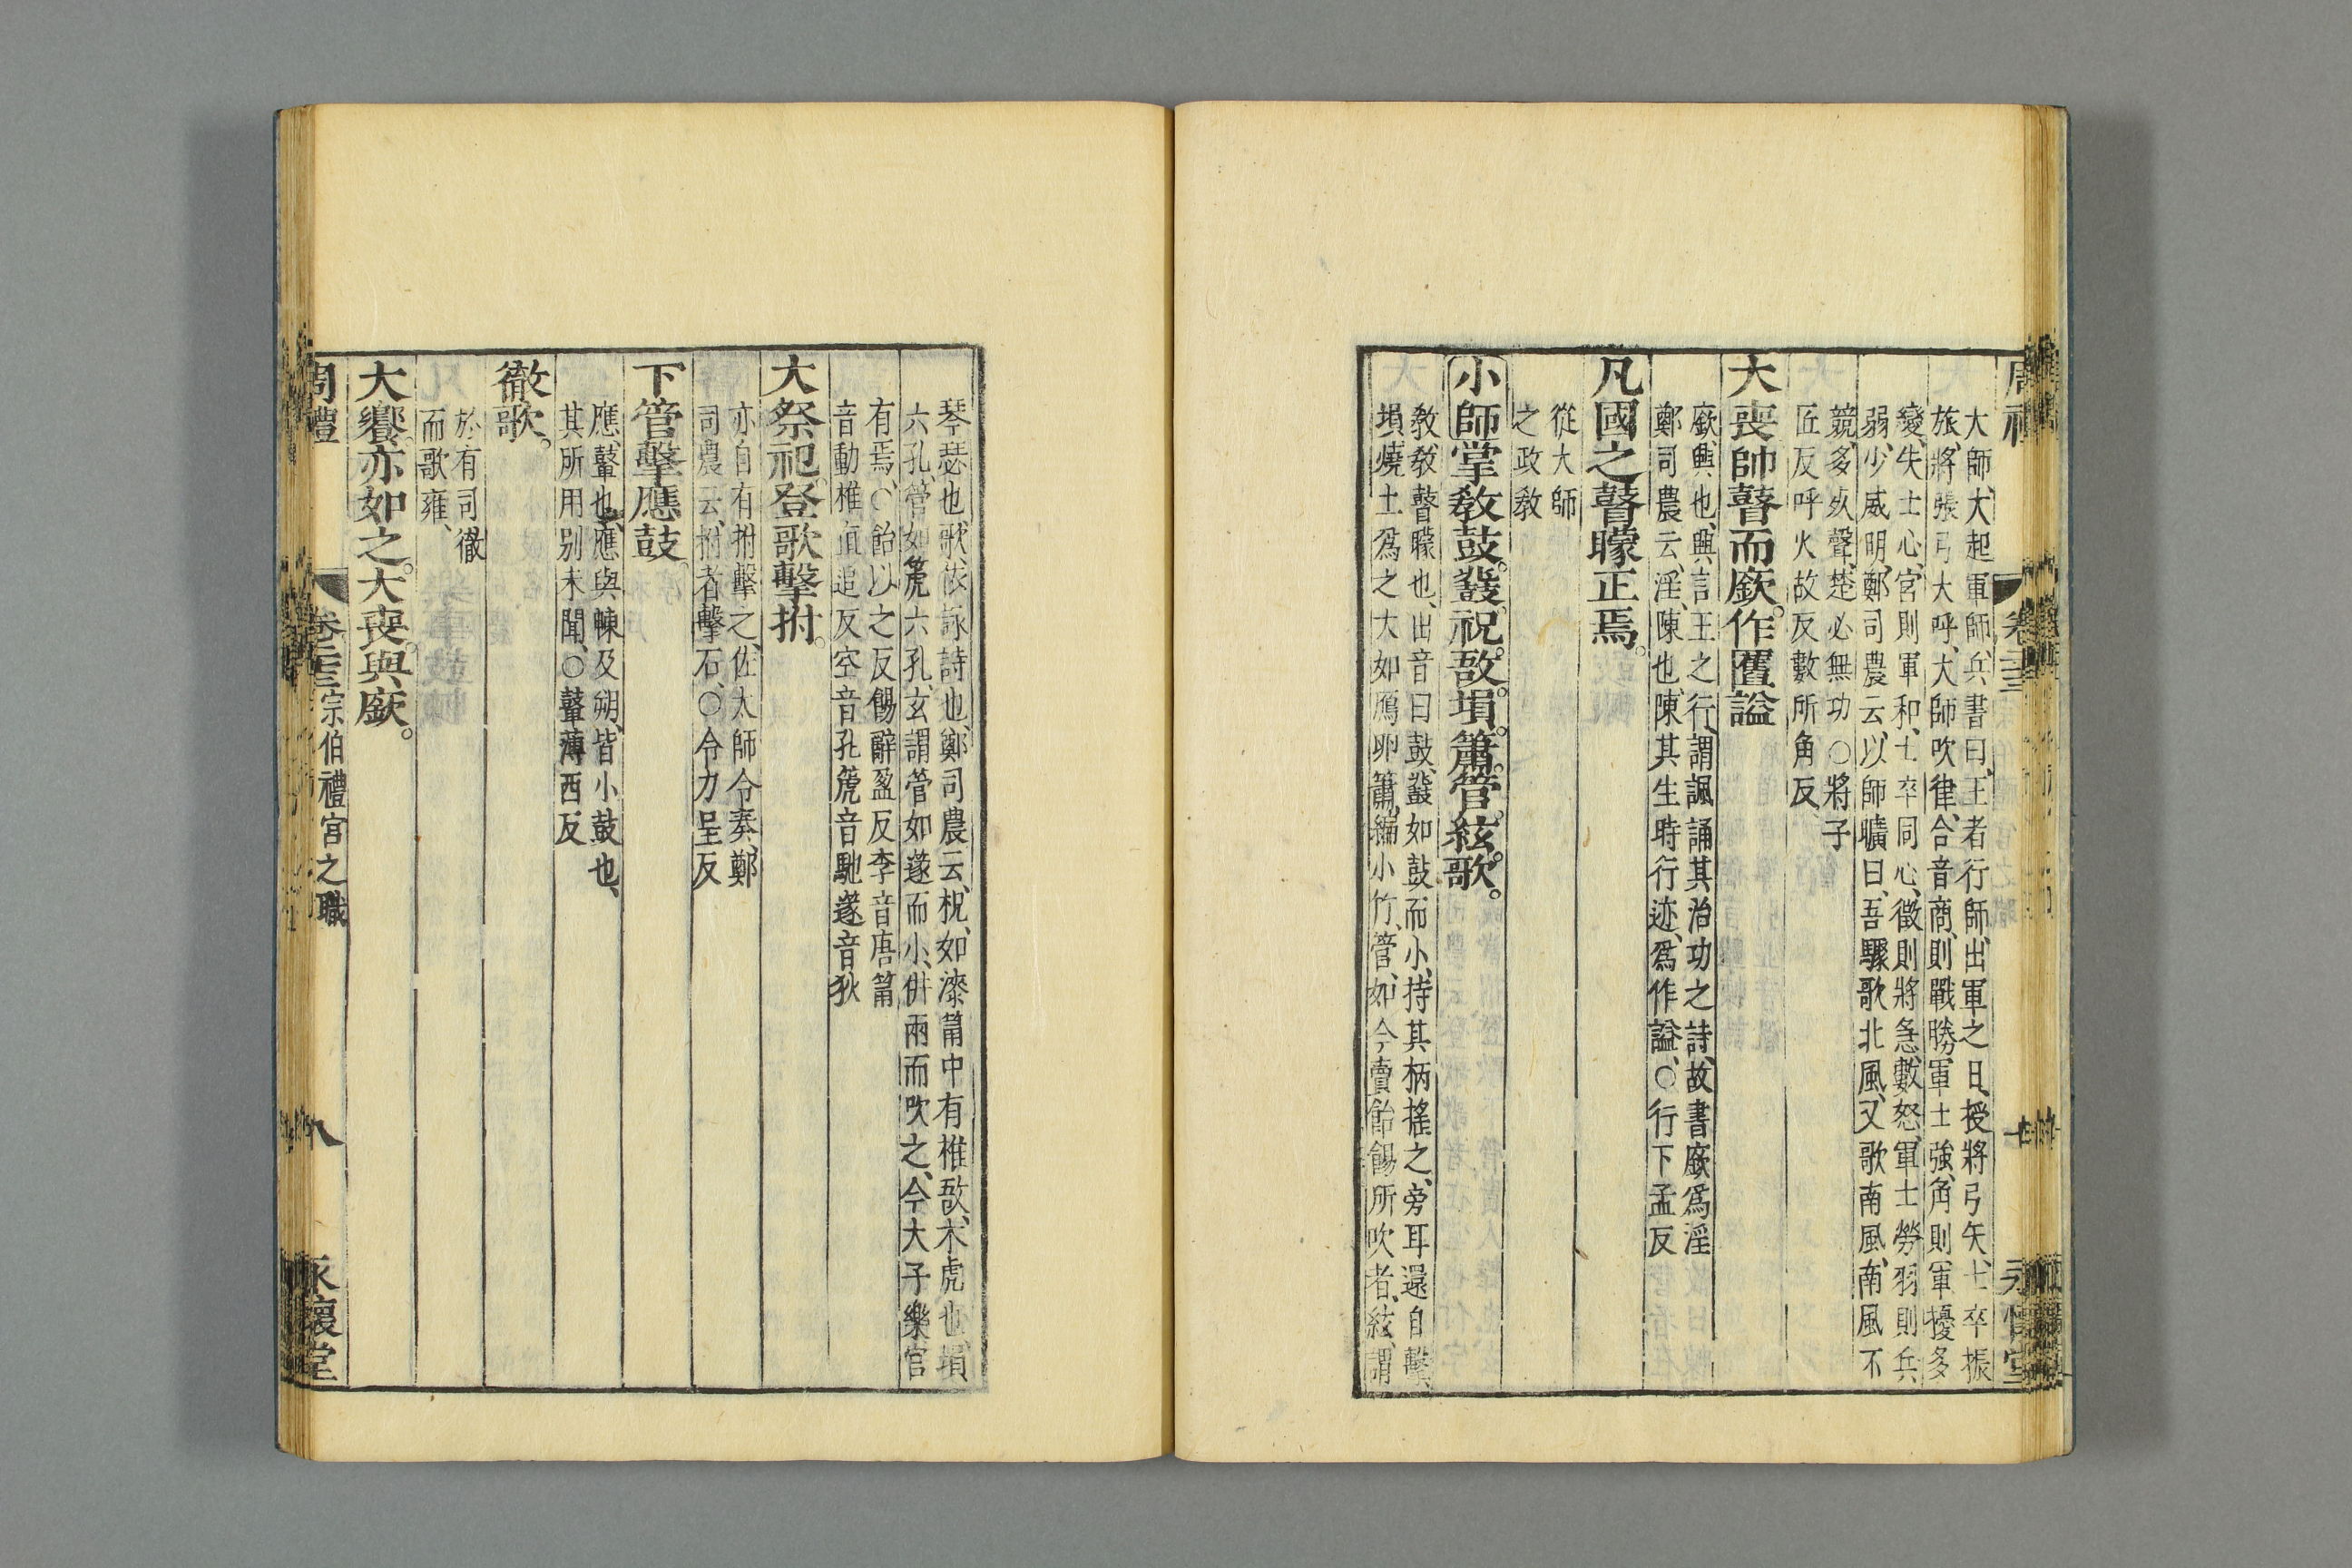 大師大起軍師、兵書曰、王者行師、出軍之日、授將弓矢、士卒振
旅、將張弓大呼、大師吹律、合音商、則戰勝軍士強、角則軍擾多
變、失士心、宮則軍和、士卒同心、徵則將急數怒、軍士勞、羽則兵
弱、少威明、鄭司農云、以師曠曰、吾驟歌北風、又歌南風、南風不
競、多死聲、楚必無功○將子
匠反呼火故反數所角反
大喪帥瞽而廞。作匶謚
廞興也、興言王之行、謂諷誦其治功之詩、故書廞爲淫
鄭司農云、淫、陳也、陳其生時行迹、爲作謚、○行下孟反
凡國之瞽矇正焉。
從大師
之政教
小師掌敎鼓。鼗。柷。敔。塤。簫。管。絃。歌。
敎敎瞽矇也、出音曰鼓、鼗如鼓而小、持其柄搖之、旁耳還自擊、
塤、燒土爲之大如鴈卵簫、編小竹、管、如今賣飴餳所吹者、絃、謂
琴瑟也、歌、依詠詩也、鄭司農云、柷、如漆筩中有椎敔、木虎也、塤
六孔、管如篪六孔、玄謂管如篴而小、併兩而吹之、今大子樂官
有焉、○飴以之反餳辭盈反李音唐筩
音動椎直追反空音孔篪音馳篴音狄
大祭祀。登歌擊拊。
亦自有拊擊之、佐大師令奏、鄭
司農云、拊者擊石、○令力呈反
下管擊應鼓
應、鼙也、應與朄及朔、皆小鼓也、
其所用別未聞、○鼙薄西反
徹歌。
於有司徹
而歌雍、
大饗。亦如之。大喪。與廞。
周禮 卷二十三 宗伯禮官之職 八 永懷堂